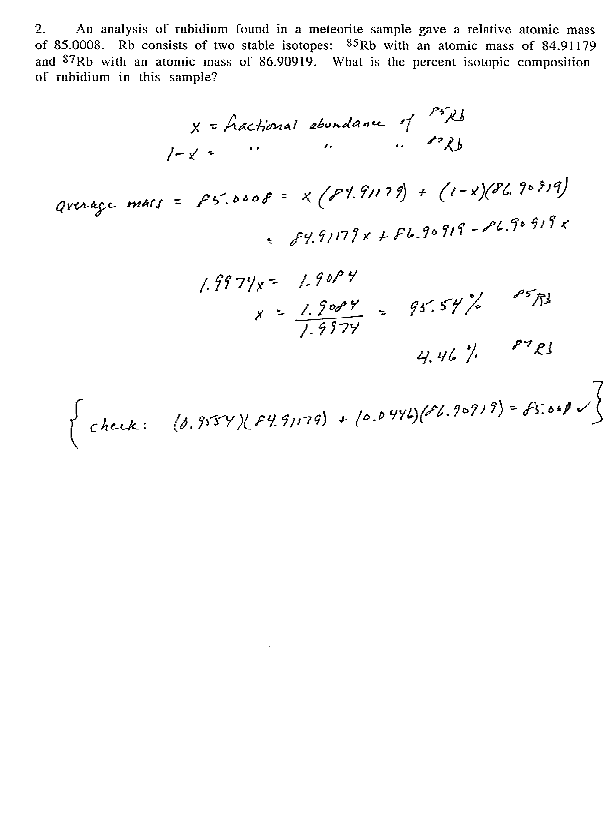 2. An analysis of rubidium found in a meteorite sample gave a relative atomic mass
of 85.0008. Rb consists of two stable isotopes: ⁸⁵Rb with an atomic mass of 84.91179
and ⁸⁷Rb with an atomic mass of 86.90919. What is the percent isotopic composition
of rubidium in this sample?
x = fractional abundance of ⁸⁵Rb
1-x = " " " ⁸⁷Rb
average mass = 85.0008 = x (84.91179) + (1-x)(86.90919)
= 84.91179x + 86.90919 - 86.90919x
1.9974x = 1.9084
x = 1.9084 / 1.9974 = 95.54% ⁸⁵Rb
4.46% ⁸⁷Rb
{ check: (0.9554)(84.91179) + (0.0446)(86.90919) = 85.0008 ✓ }